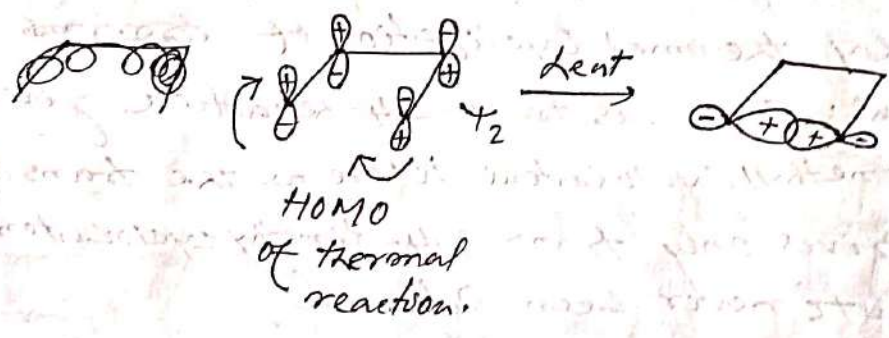 + + - -
- - + +
Ψ2
heat
- + + -
HOMO
of thermal
reaction.